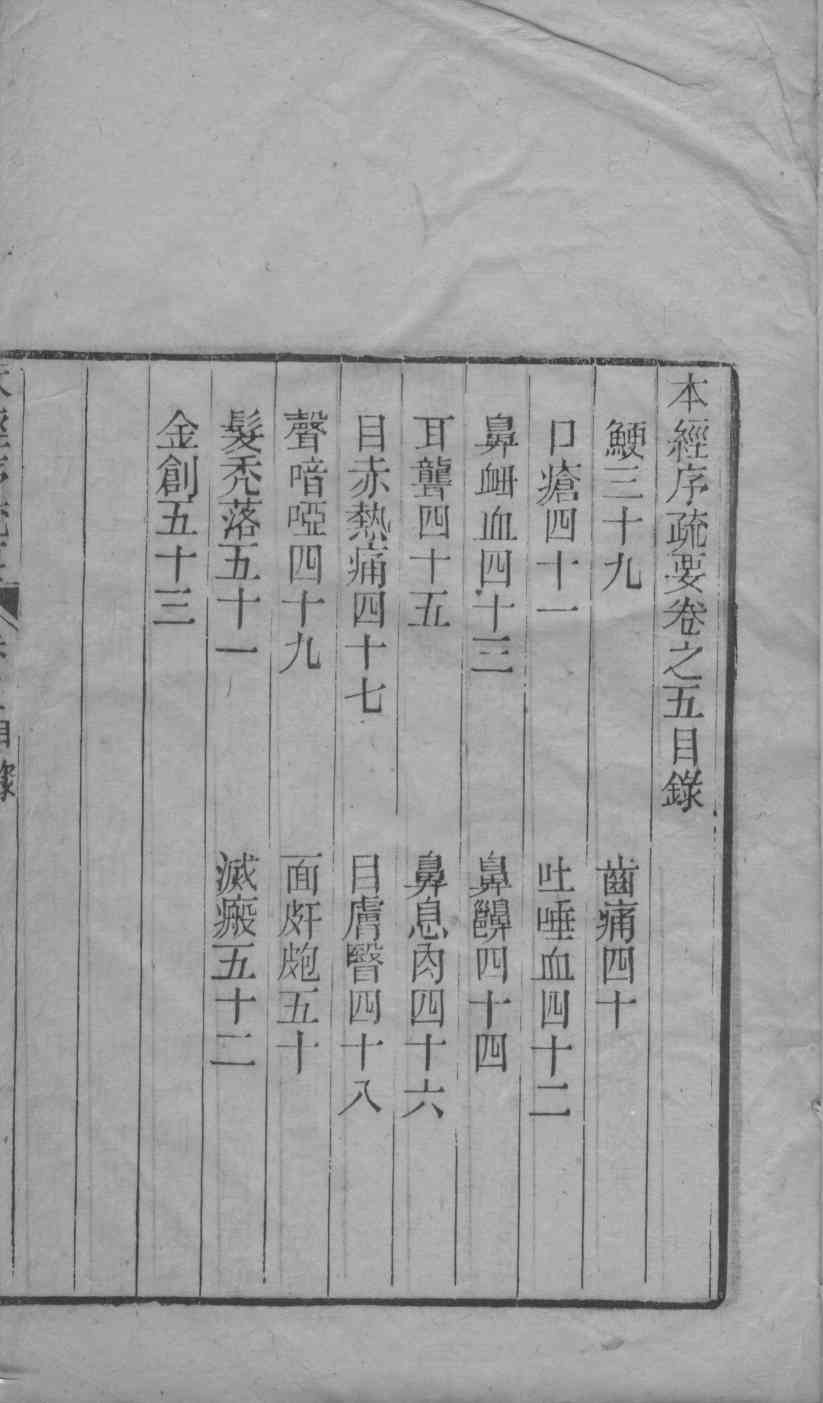 本經序疏要卷之五目錄
鯁三十九　齒痛四十
口瘡四十一　吐唾血四十二
鼻衂血四十三　鼻齆四十四
耳聾四十五　鼻息肉四十六
目赤熱痛四十七　目膚翳四十八
聲喑啞四十九　面皯皰五十
髮禿落五十一　滅瘢五十二
金創五十三